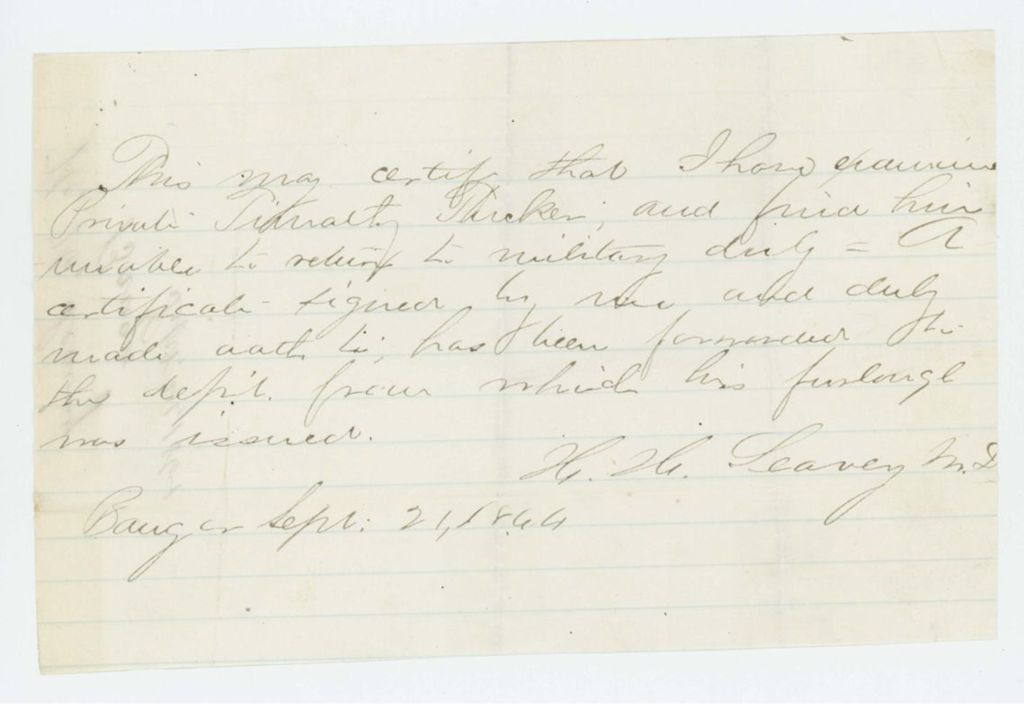 This may certify that I have examine
Private Timothy Thicker, and find him
unable to return to military duty = A
certificate signed by me and duly
made oath to, has been forwarded to
the dep't. from which his furlough
was issued.
H. H. Seavey M.D
Bangor Sept. 21, 1864